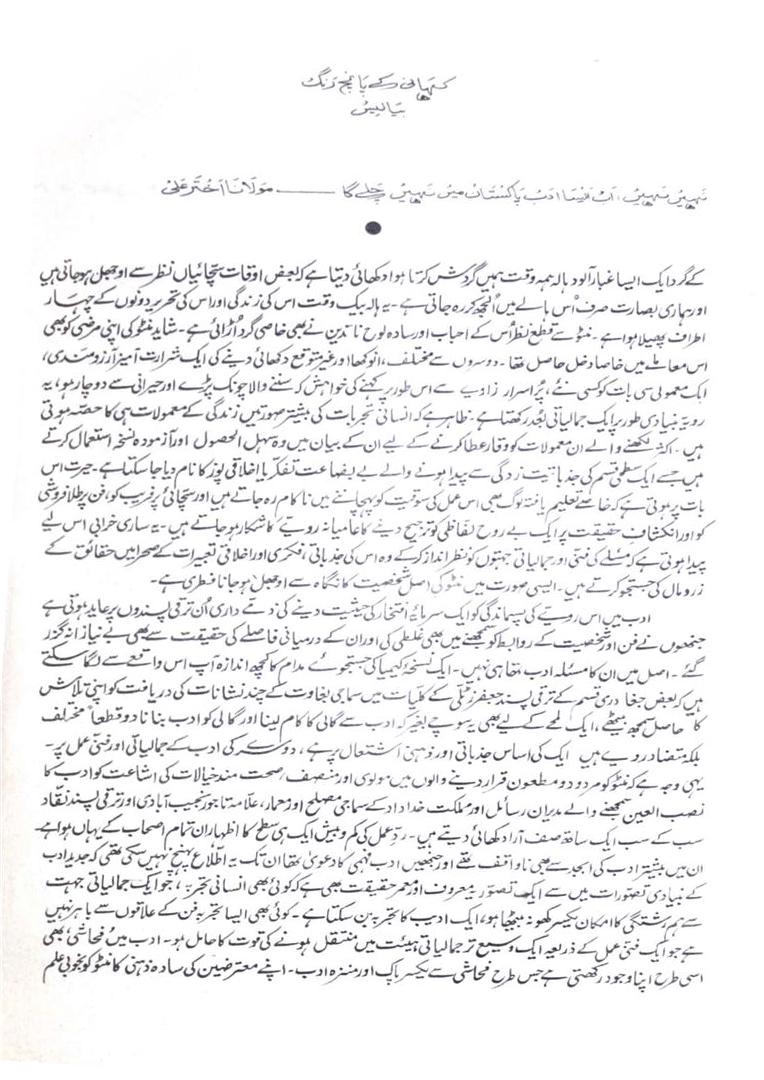 کہانی کے پانچ رنگ
بیالیس
نہیں نہیں، اب ایسا ادب پاکستان میں نہیں چلے گا ——— مولانا اختر علی
کے گرد ایک ایسا غبار آلود ہالہ ہمہ وقت ہمیں گردش کرتا ہوا دکھائی دیتا ہے کہ بعض اوقات سچائیاں نظر سے اوجھل ہو جاتی ہیں
اور ہماری بصارت صرف اُس ہالے میں اُلجھ کر رہ جاتی ہے۔ یہ ہالہ بیک وقت اس کی زندگی اور اس کی تحریر دونوں کے چہار
اطراف پھیلا ہوا ہے۔ منٹو سے قطع نظر اُس کے احباب اور سادہ لوح ناقدین نے بھی خاصی گرد اُڑائی ہے۔ شاید منٹو کی اپنی مرضی کو بھی
اس معاملے میں خاصا دخل حاصل تھا۔ دوسروں سے مختلف، انوکھا اور غیر متوقع دکھائی دینے کی ایک شرارت آمیز آرزومندی،
ایک معمولی سی بات کو کسی نئے، پُر اسرار زاویے سے اس طور پر کہنے کی خواہش کہ سننے والا چونک پڑے اور حیرانی سے دوچار ہو، یہ
رویہ بنیادی طور پر ایک جمالیاتی بُعد رکھتا ہے۔ ظاہر ہے کہ انسانی تجربات کی بیشتر صورتیں زندگی کے معمولات ہی کا حصہ ہوتی
ہیں۔ اکثر لکھنے والے ان معمولات کو وقار عطا کرنے کے لیے ان کے بیان میں وہ سہل الحصول اور آزمودہ نسخہ استعمال کرتے
ہیں جسے ایک سطحی قسم کی جذباتیت زدگی سے پیدا ہونے والے بے بضاعت تفکر یا اخلاقی پوز کا نام دیا جا سکتا ہے۔ حیرت اس
بات پر ہوتی ہے کہ خاصے تعلیم یافتہ لوگ بھی اس عمل کی سوقیت کو پہچاننے میں ناکام رہ جاتے ہیں اور سچائی پر فریب کو، فن پر طلا فروشی
کو اور انکشاف حقیقت پر ایک بے روح لفاظی کو ترجیح دینے کا عامیانہ رویے کا شکار ہو جاتے ہیں۔ یہ ساری خرابی اس لیے
پیدا ہوتی ہے کہ مسئلے کی فنی اور جمالیاتی جہتوں کو نظر انداز کر کے وہ اس کی جذباتی، فکری اور اخلاقی تعبیرات کے صحرا میں حقائق کے
زر و مال کی جستجو کرتے ہیں۔ ایسی صورت میں منٹو کی اصل شخصیت کا نگاہ سے اوجھل ہو جانا فطری ہے۔
ادب میں اس رویے کی پسماندگی کو ایک سرمایۂ افتخار کی حیثیت دینے کی ذمے داری اُن ترقی پسندوں پر عاید ہوتی ہے
جنھوں نے فن اور شخصیت کے روابط کو سمجھنے میں بھی غلطی کی اور ان کے درمیانی فاصلے کی حقیقت سے بھی بے نیازانہ گزر
گئے۔ اصل میں ان کا مسئلہ ادب تھا ہی نہیں۔ ایک نسخۂ کیمیا کی جستجوئے مدام کا کچھ اندازہ آپ اس واقعے سے لگا سکتے
ہیں کہ بعض جغادری قسم کے ترقی پسند جعفر زٹلی کے کلیات میں سماجی بغاوت کے چند نشانات کی دریافت کو اپنی تلاش
کا حاصل سمجھ بیٹھے، ایک لمحے کے لیے بھی یہ سوچے بغیر کہ ادب سے گالی کا کام لینا اور گالی کو ادب بنا نا دو قطعاً مختلف
بلکہ متضاد رویے ہیں ایک کی اساس جذباتی اور ذہنی اشتعال پر ہے، دوسرے کی ادب کے جمالیاتی اور فنی عمل پر۔
یہی وجہ ہے کہ منٹو کو مردود و مطعون قرار دینے والوں میں مولوی اور منصف، صحت مند خیالات کی اشاعت کو ادب کا
نصب العین سمجھنے والے مدیران رسائل اور مملکت خداداد کے سماجی مصلح اور زعما، علامہ تاجور نجیب آبادی اور ترقی پسند نقّاد
سب کے سب ایک ساتھ صف آرا دکھائی دیتے ہیں۔ ردِّ عمل کی کم و بیش ایک ہی سطح کا اظہار ان تمام اصحاب کے یہاں ہوا ہے۔
ان میں بیشتر ادب کی ابجد سے بھی ناواقف تھے اور جنھیں ادب فہمی کا دعویٰ تھا ان تک یہ اطلاع پہنچ نہیں سکی تھی کہ جدید ادب
کے بنیادی تصورات میں سے ایک تصور یہ معروف اور اہم حقیقت بھی ہے کہ کوئی بھی انسانی تجربہ، جو ایک جمالیاتی جہت
سے ہم رشتگی کا امکان یکسر کھو نہ بیٹھا ہو، ایک ادیب کا تجربہ بن سکتا ہے۔ کوئی بھی ایسا تجربہ فن کے علاقوں سے باہر نہیں
ہے جو ایک فنی عمل کے ذریعہ ایک وسیع تر جمالیاتی ہیئت میں منتقل ہونے کی قوت کا حامل ہو۔ ادب میں فحاشی بھی
اسی طرح اپنا وجود رکھتی ہے جس طرح فحاشی سے یکسر پاک اور منزہ ادب۔ اپنے معترضین کی سادہ ذہنی کا منٹو کو بخوبی علم